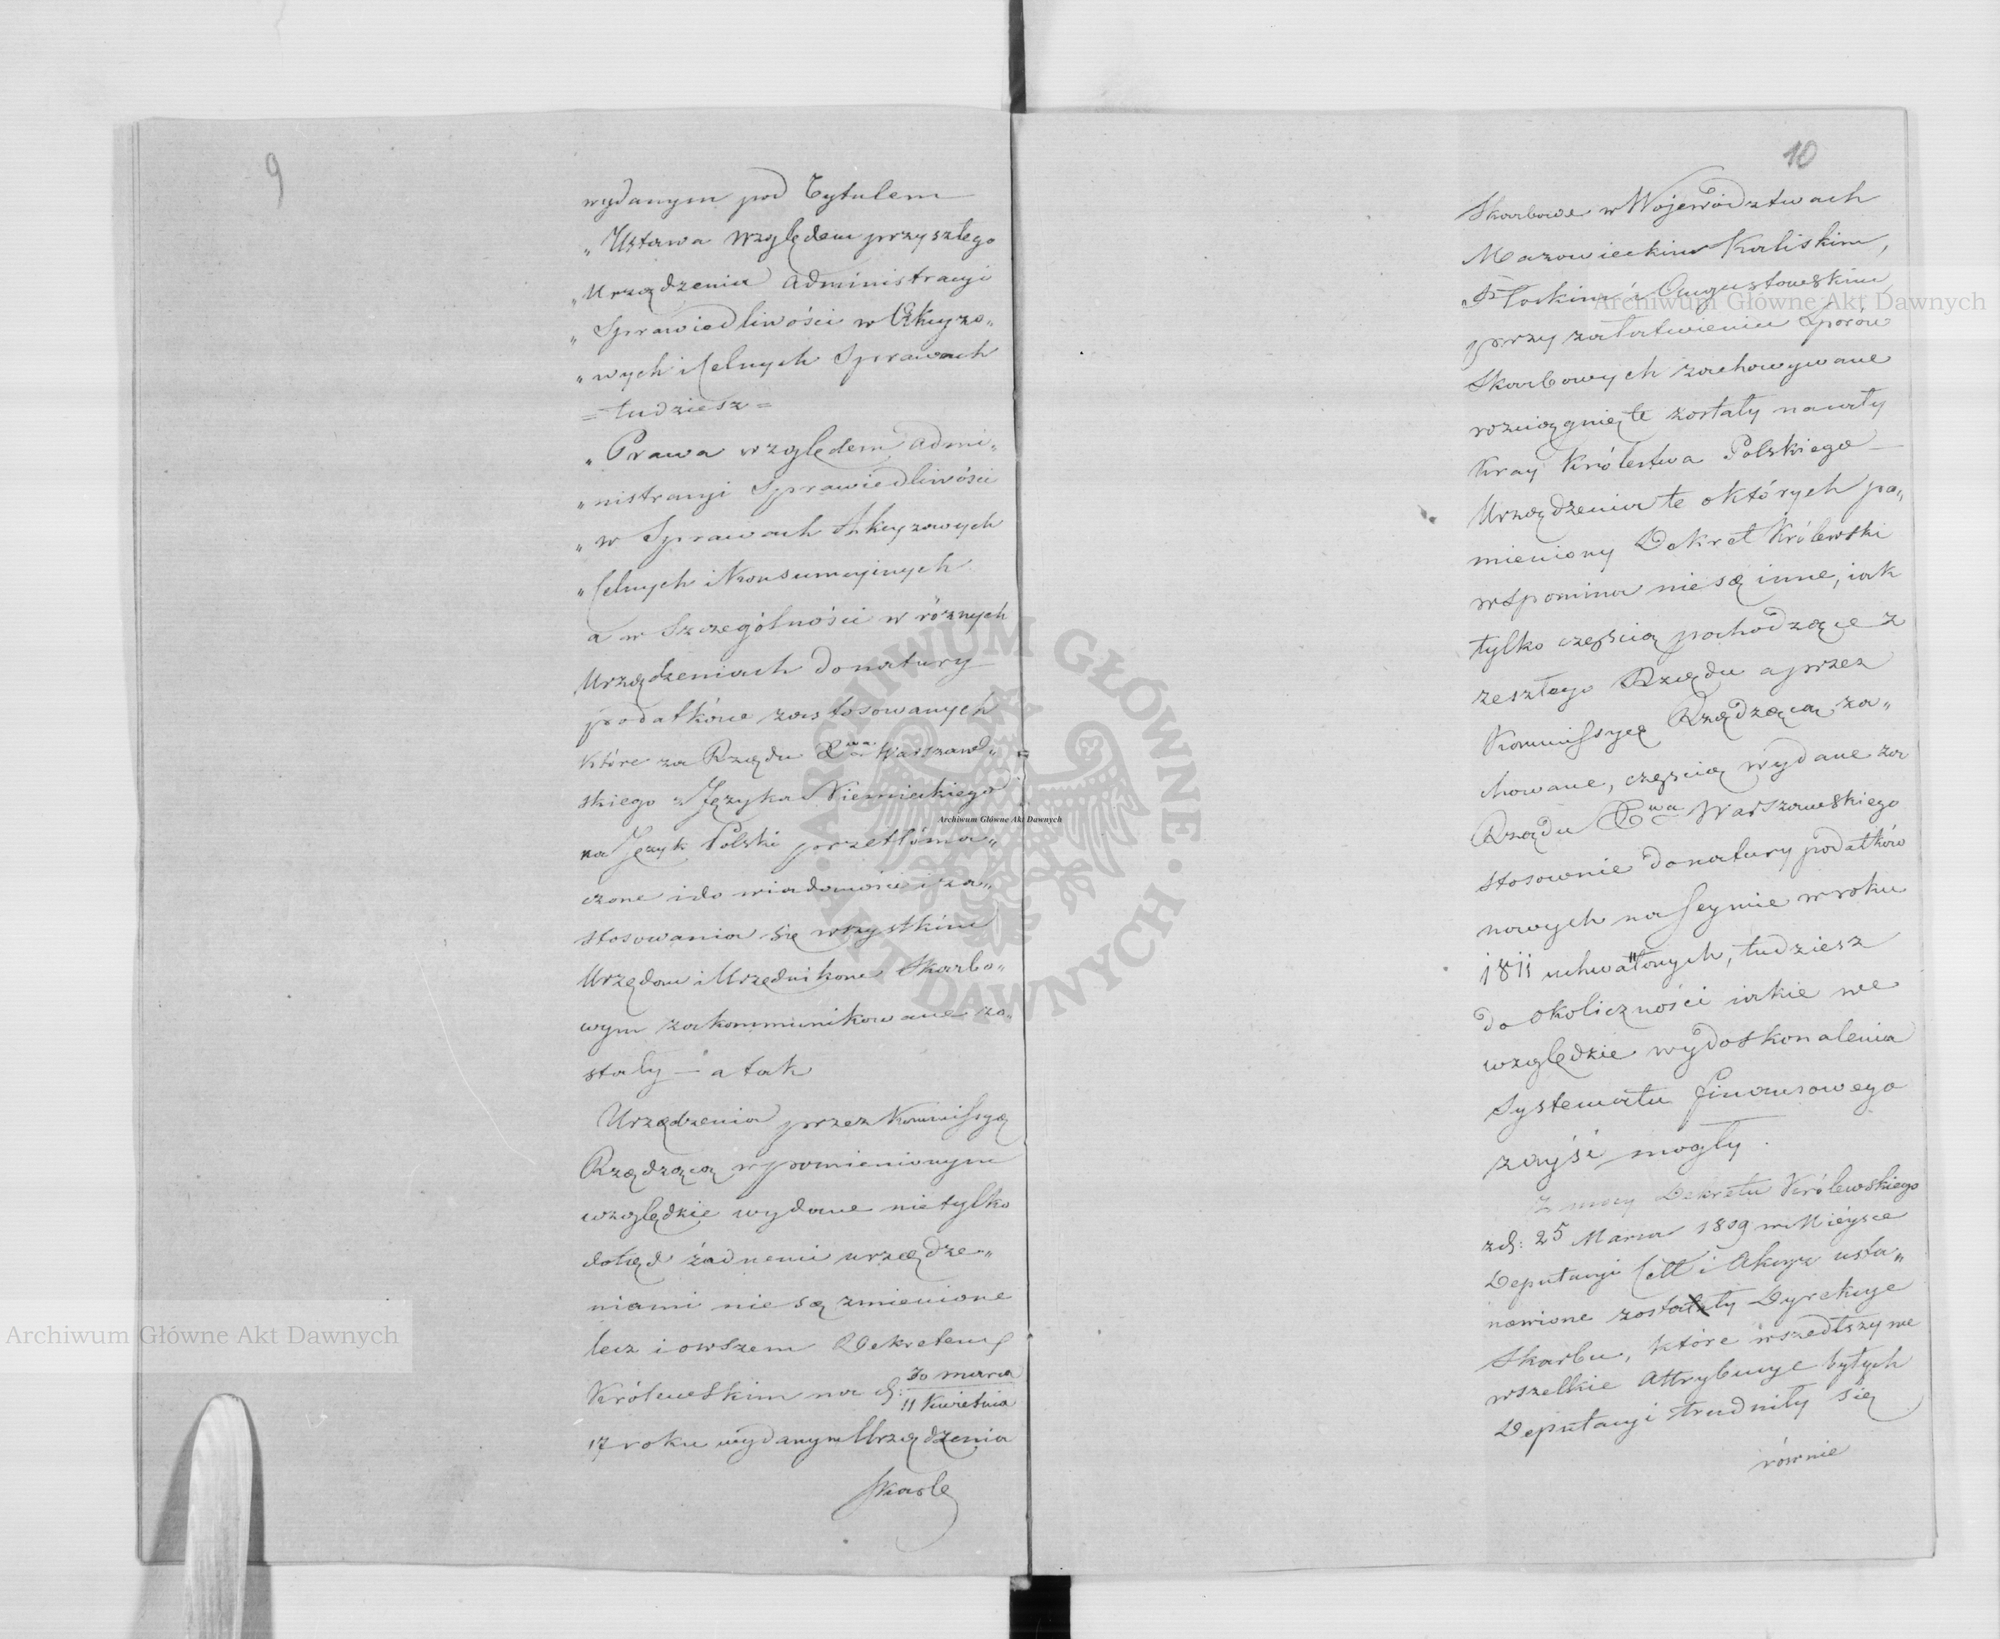 9
wydanym pod Tytulem
„Ustawa względem przyszłego
„Urządzenia administracyi
„Sprawiedliwości w Akcyzo„
„wych i Celnych Sprawach
= tudziesz =
„Prawa względem admi„
„nistracyi Sprawiedliwości
„w Sprawach Akcyzowych
„Celnych i Konsumcyinych
a w Szczególności w różnych
Urządzeniach do natury
podatków zastosowanych
które za Rządu Xwa Warszaw„
skiego z Języka Niemieckiego
na Język Polski przetłóma„
czone i do wiadomości i za„
stosowania się wszystkim
Urzędom i Urzędnikom Skarbo„
wym zakommunikowane zo„
stały – a tak
Urządzenia przez Kommissyą
Rządzącą w pomienionym
względzie wydane nietylko
dotąd żadnemi urządze„
niami nie są zmienione
lecz i owszem Dekretem
Królewskim na d: 30 marca
11 Kwietnia
17 roku wydanym Urządzenia
Skarb
10
Skarbowe w Województwach
Mazowieckim Kaliskim,
Płockim i Augustowskim
przy załatwieniu Sporów
Skarbowych zachowywane
rozciągnięte zostały na cały
Kray Królestwa Polskiego
Urządzenia te o których po„
mieniony Dekret Królewski
wspomina nie są inne, iak
tylko częścią pochodzące z
zeszłego Rządu a przez
Kommissyę Rządzącą za„
chowane, częścią wydane za
Rządu Xwa Warszawskiego
stosownie do natury podatków
nowych na Seymie w roku
1811 uchwalonych, tudziesz
do okoliczności iakie we
względzie wydoskonalenia
Systematu finansowego
zayść mogły.
Z mocy Dekretu Królewskiego
z d: 25 Marca 1809 w Mieysce
Deputacyi Cell i Akcyz usta„
nowione zostały Dyrekcye
Skarbu, które wszedłszy we
wszelkie Attrybucye byłych
Deputacyi trudniły się
równie
Archiwum Główne Akt Dawnych
Archiwum Główne Akt Dawnych
Archiwum Główne Akt Dawnych
ARCHIWUM GŁÓWNE
AKT DAWNYCH